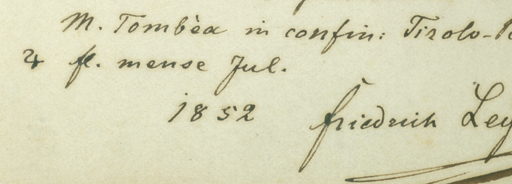 M. Tombèa in confin: Tirolo-
♃ fl. mense Jul.
1852 Friedrich Ley